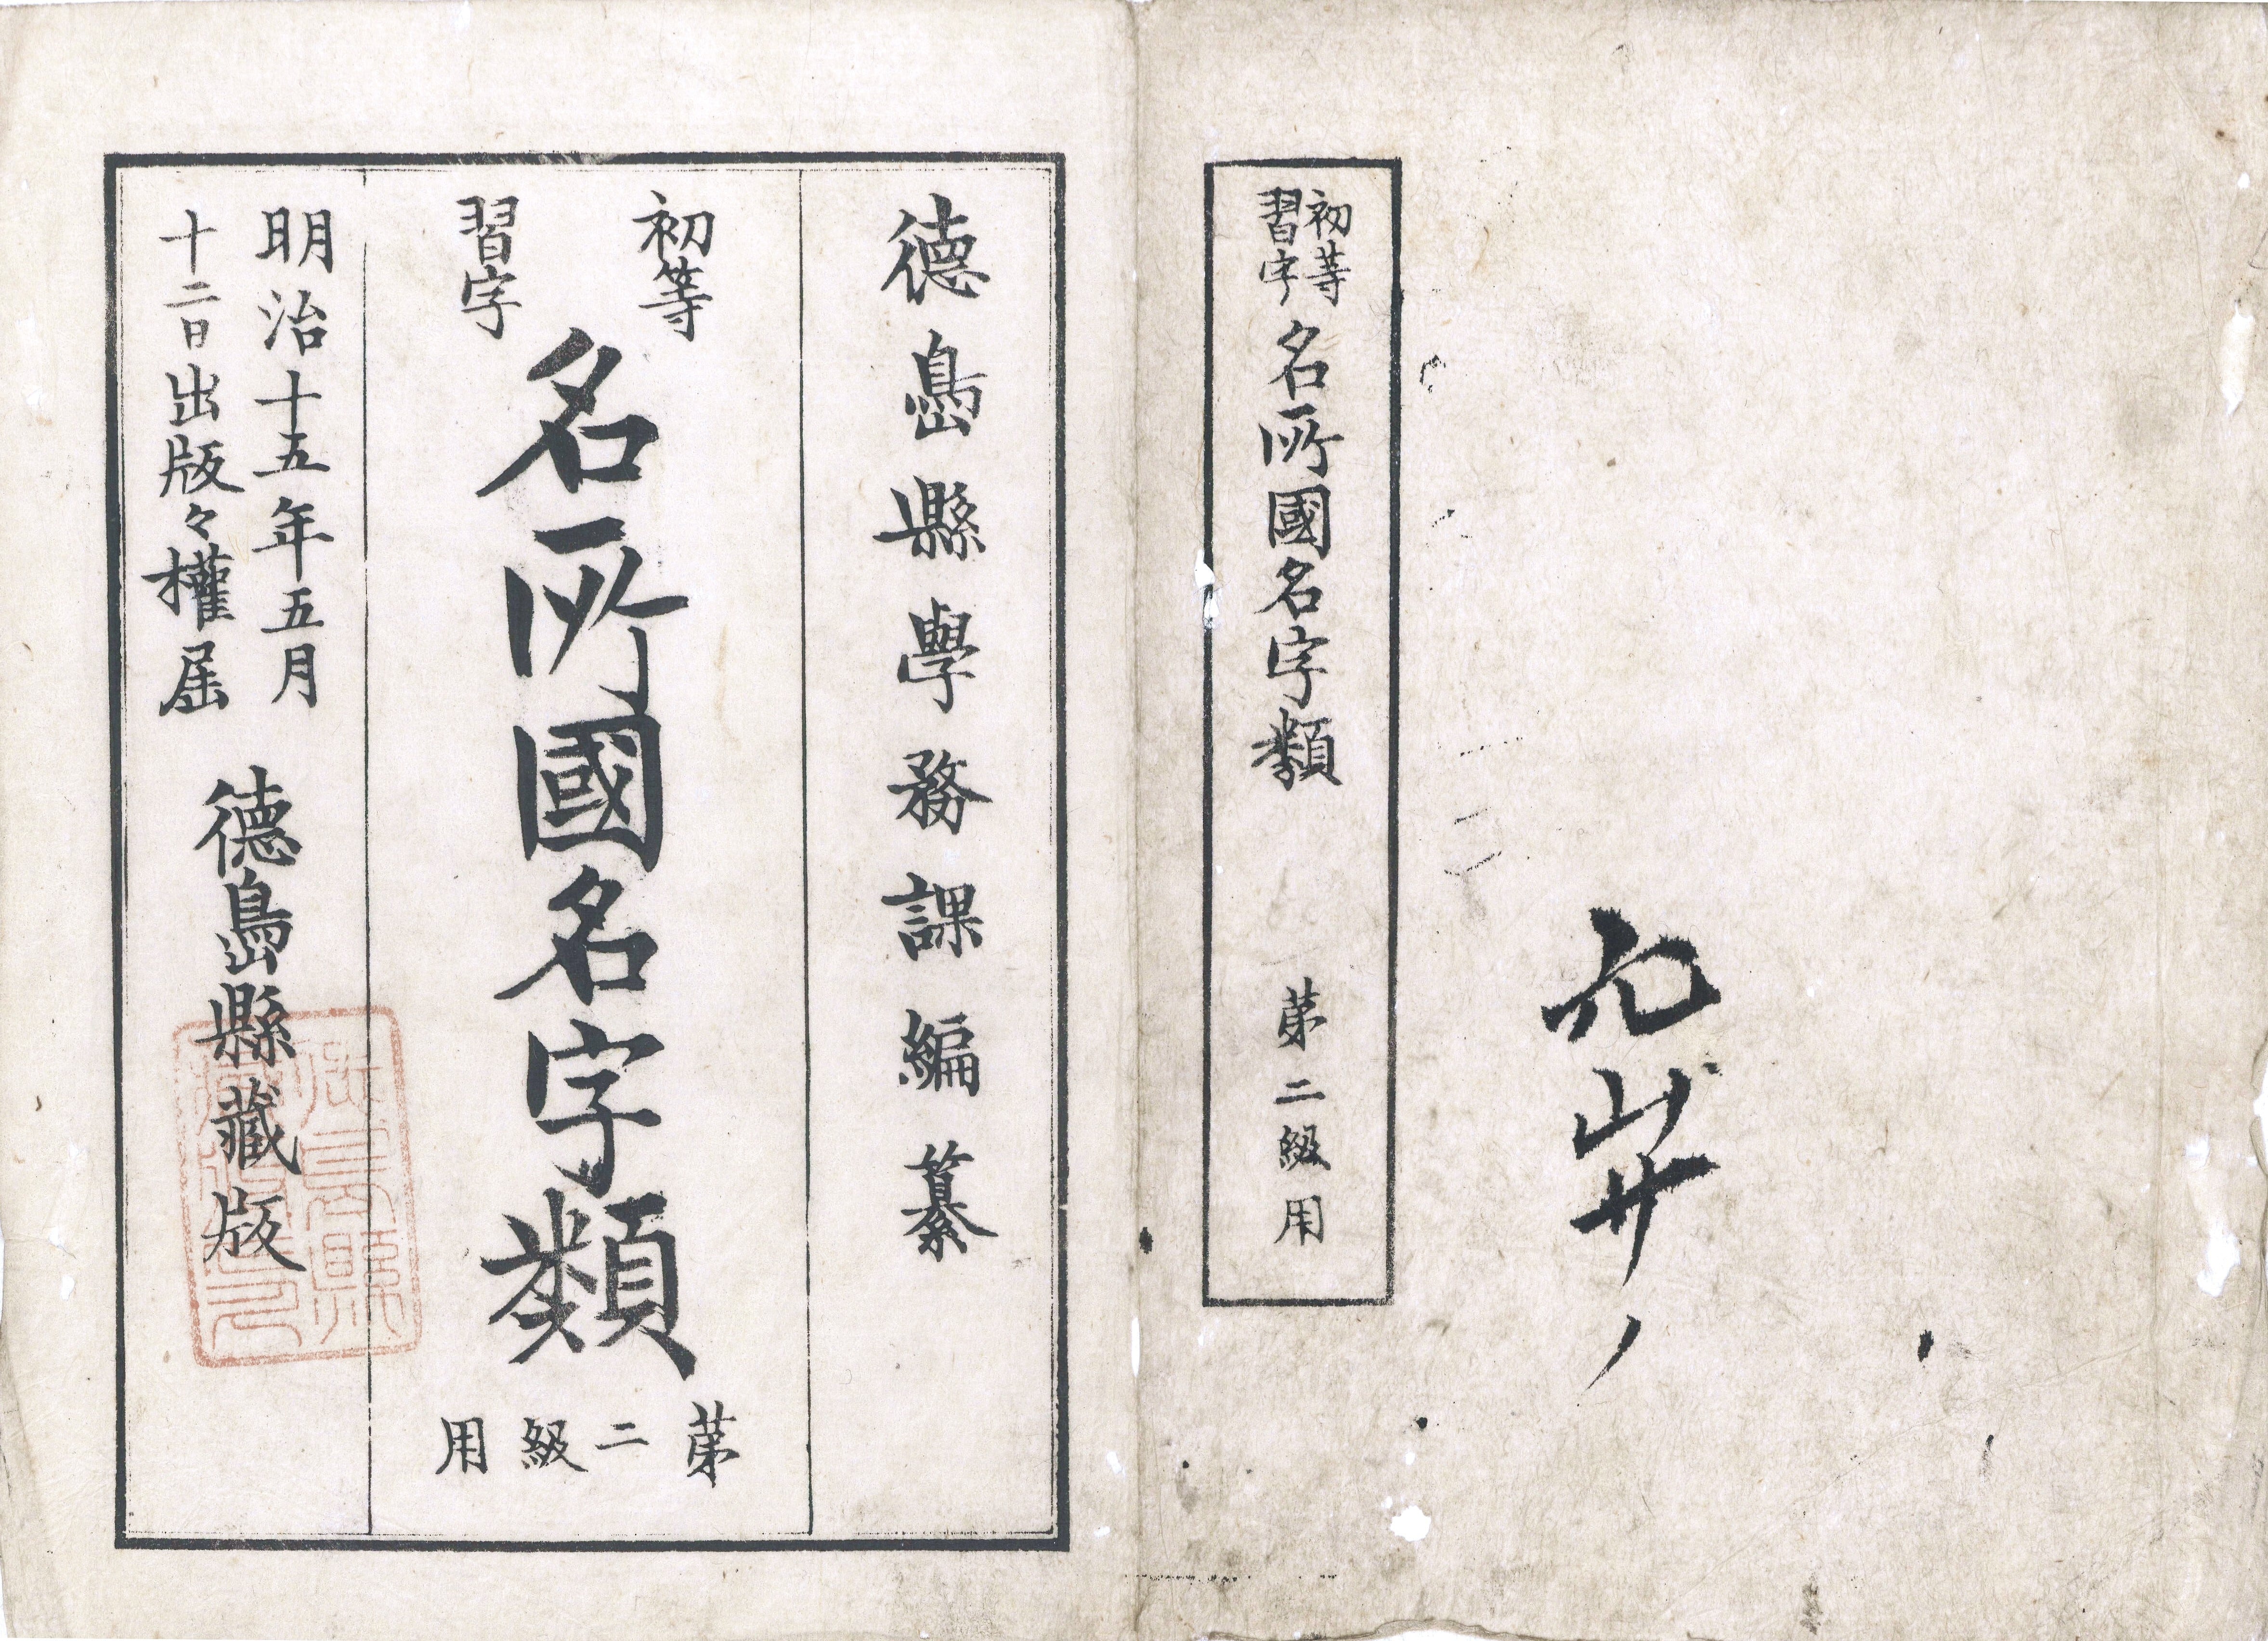 初等
習字
名所國名字類
第二級用
德島縣學務課編纂
初等
習字
名所國名字類
第二級用
明治十五年五月
十二日出版々權届
德島縣藏版